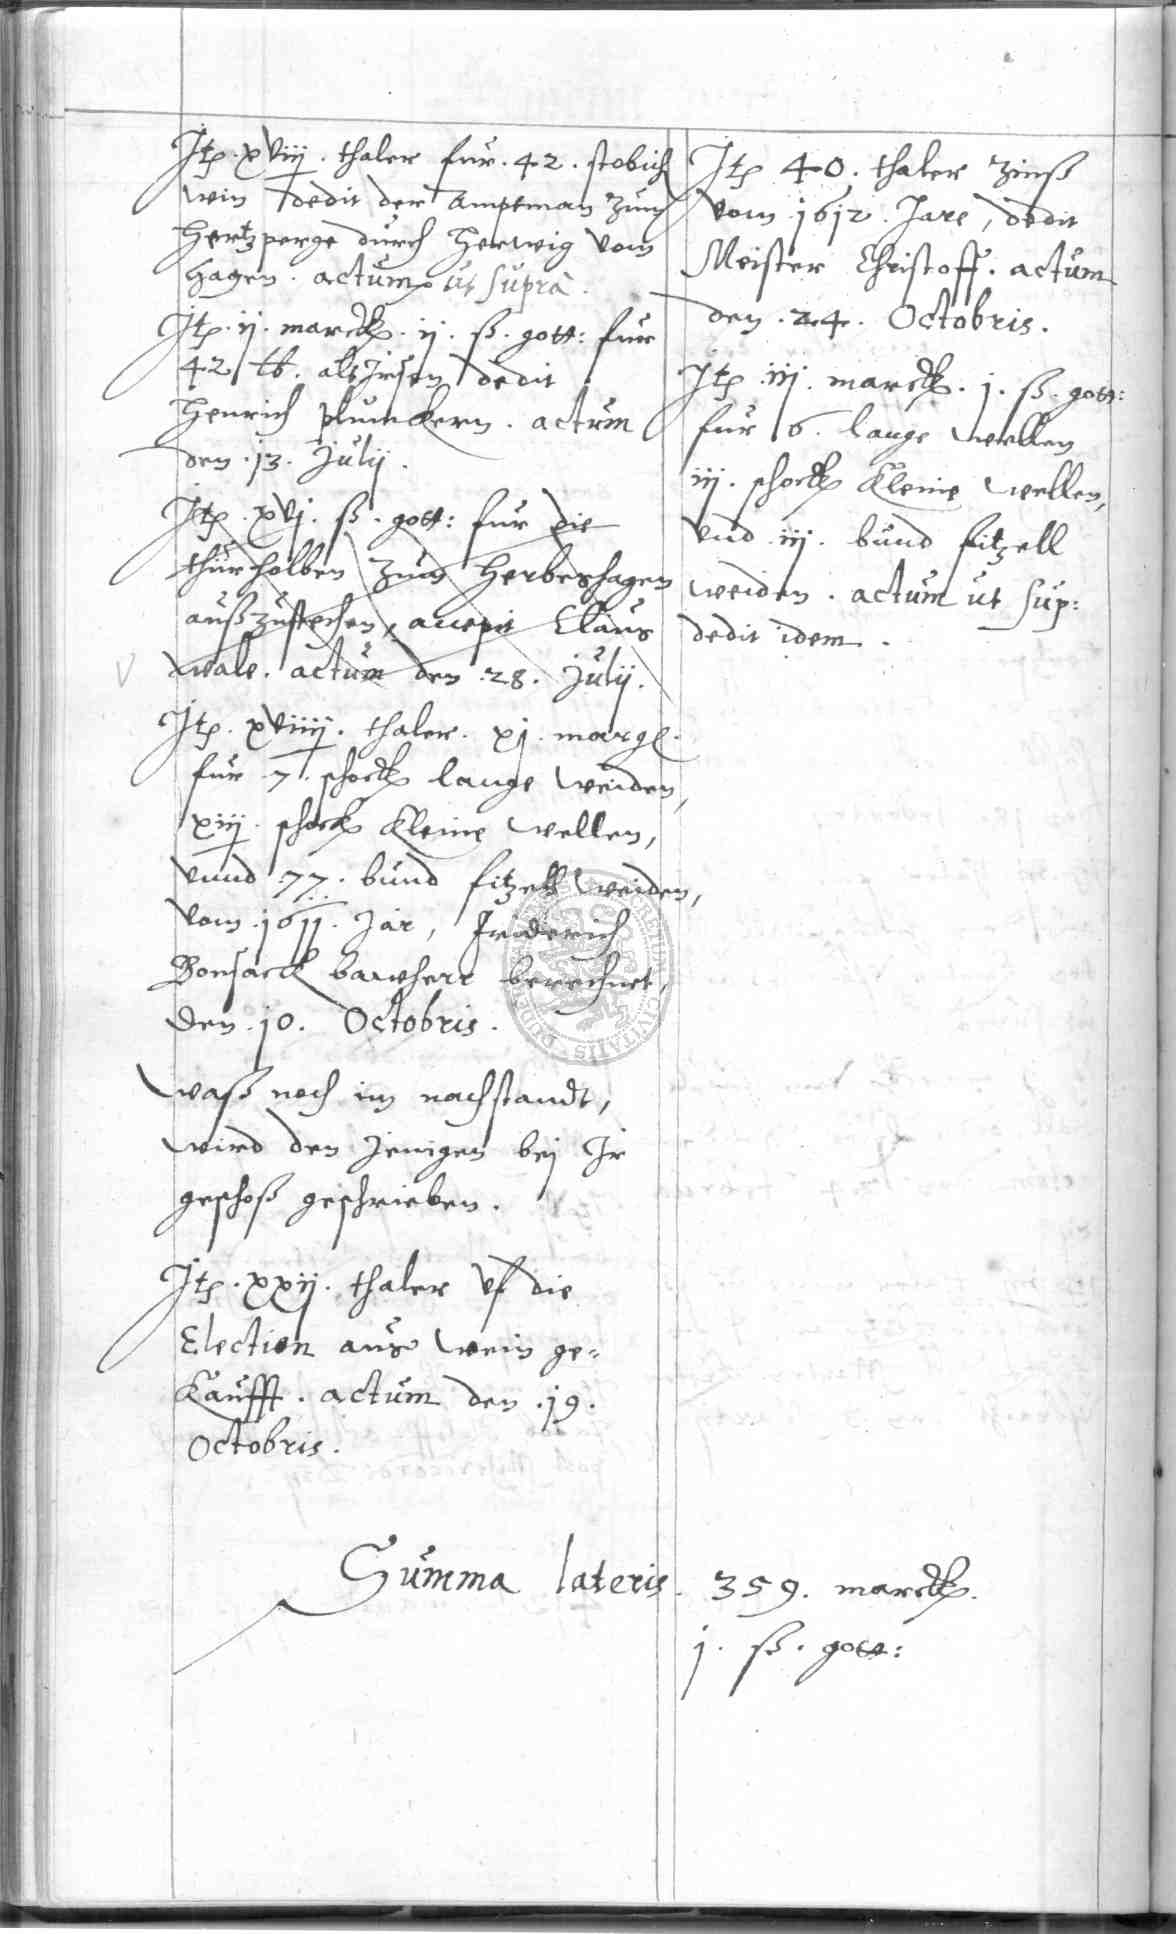 Itē. xviij. thaler fur. 42. stobich
win dedit der Amptman zum
Hertzperge durch Herwig vom
Hagen. actum ut supra.
Itē. ij. marck. ij. ß. gott: fur
42 lb. alt Irsen dedit
Henrich Plumckern. actum
den. 13. Julij.
Itē. xvj. ß. gott: fur die
thur holben zum Herbershagen
außzustechen, accepit Claus
wale. actum den. 28. Julij.
Itē. xviiij. thaler. xj. margl.
fur. 7. schock lange weiden,
xiij. schock kleine wellen,
vnnd. 77. bund fitzell weiden,
vom. 1611. Jar, Friderich
Bonsack bawherr berechnet,
den. 10. Octobris.
waß noch im nachstandt,
wird den Jenigen bej Ir
geschoß geschrieben.
Itē. xxij. thaler vf die
Election ans wein ge-
kaufft. actum den. 19.
Octobris.
Itē 40. thaler Zinß
vom. 1612. Jare, dedit
Meister Christoff. actum
den. 24. Octobris.
Itē. iij. marck. j. ß. gott:
fur 6. lange wellen
iij. schock kleine wellen,
vnd. iij. bund fitzell
weiden. actum ut sup:
dedit idem.
Summa lateris. 359. marck.
j. ß. gott: